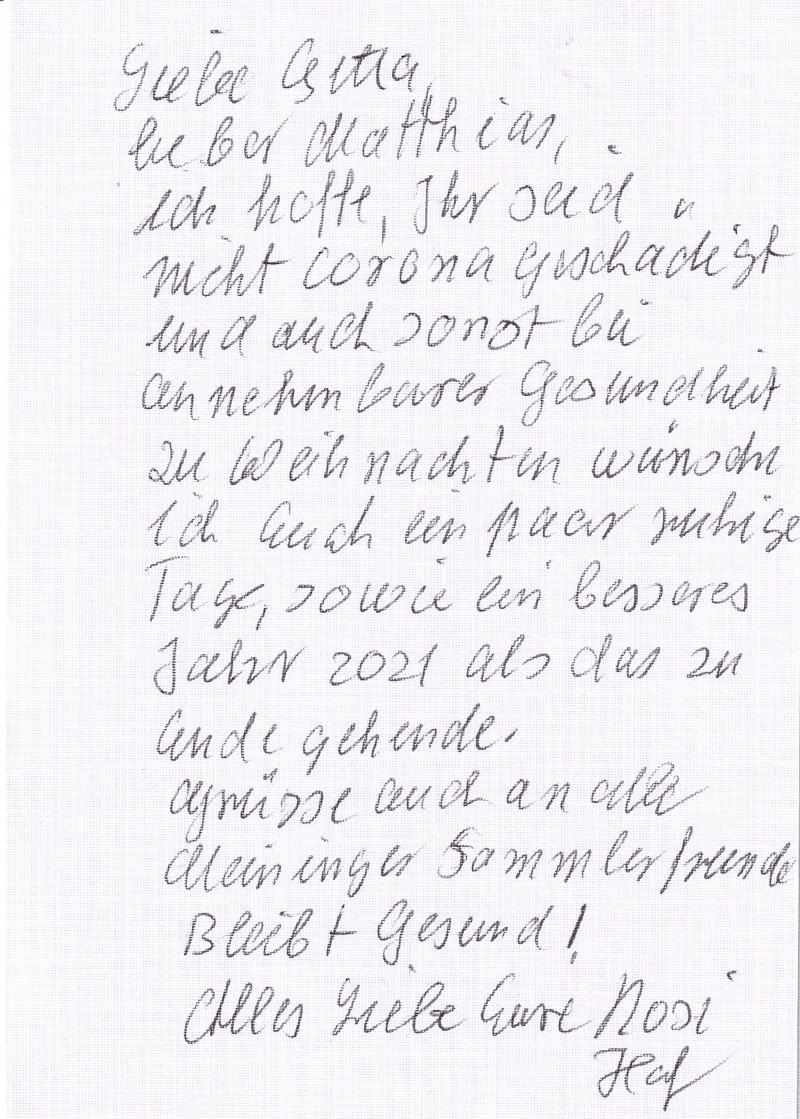 Liebe Gitta,
lieber Matthias,
ich hoffe, Ihr seid
nicht Corona geschädigt
und auch sonst bei
annehmbarer Gesundheit
zu Weihnachten wünsche
ich Euch ein paar ruhige
Tage, sowie ein besseres
Jahr 2021 als das zu
Ende gehende.
Grüsse auch an alle
Meininger Sammlerfreunde
Bleibt Gesund!
Alles Liebe Eure Rosi